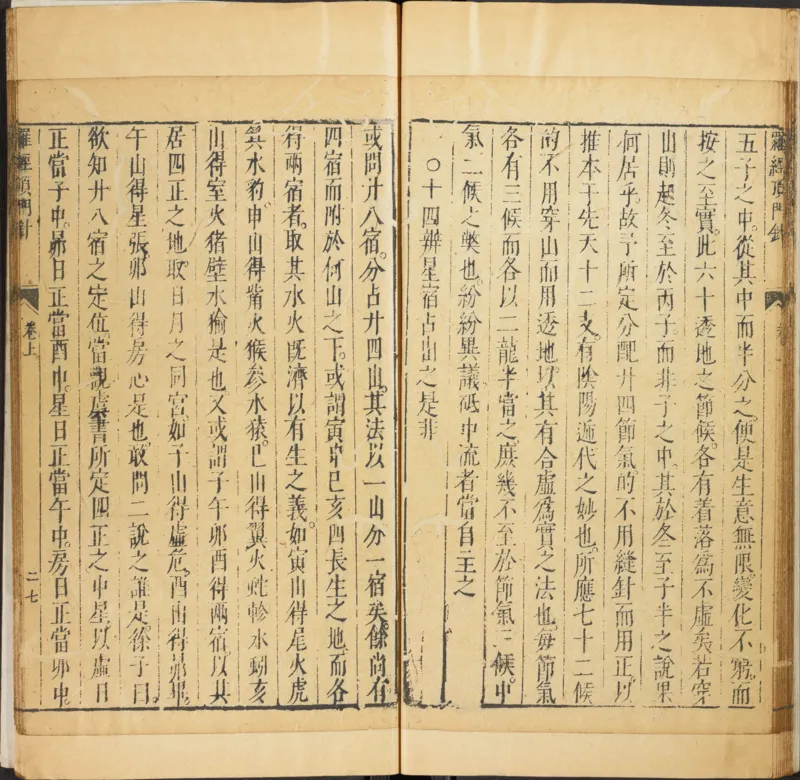 羅經頂門針
五子之中。從其中而半分之。便是生意無限。變化不窮。而
按之至實。此六十透地之節候。各有着落。爲不虛矣。若穿
山則起冬至於丙子。而非子之中。其於冬至子半之說。果
何居乎。故予所定分配廿四節氣。的不用縫針而用正。以
推本于先天十二支。有陰陽遞代之妙也。所應七十二候
的不用穿山而用透地。以其有合虛爲實之法也。每節氣
各有三候。而各以二龍半當之。庶幾不至於節氣三候。中
氣二候之弊也。紛紛異議。砥中流者。當自主之
○十四辨星宿占山之是非
或問廿八宿。分占廿四山。其法以一山分一宿矣。餘尚有
四宿而附於何山之下。或謂寅申巳亥四長生之地。而各
得兩宿者。取其水火既濟以有生之義。如寅山得尾火虎
箕水豹。申山得觜火猴參水猿。巳山得翼火蛇軫水蚓。亥
山得室火猪壁水㺄是也。又或謂子午卯酉得兩宿。以其
居四正之地。取日月之同宮。如子山得虛危。酉山得昴畢。
午山得星張。卯山得房心是也。敢問二說之誰是。徐子曰。
欲知廿八宿之定位。當觀虞書所定四正之中星。以虛日
正當子中。昴日正當酉中。星日正當午中。房日正當卯中。
羅經頂門針
卷上
二七